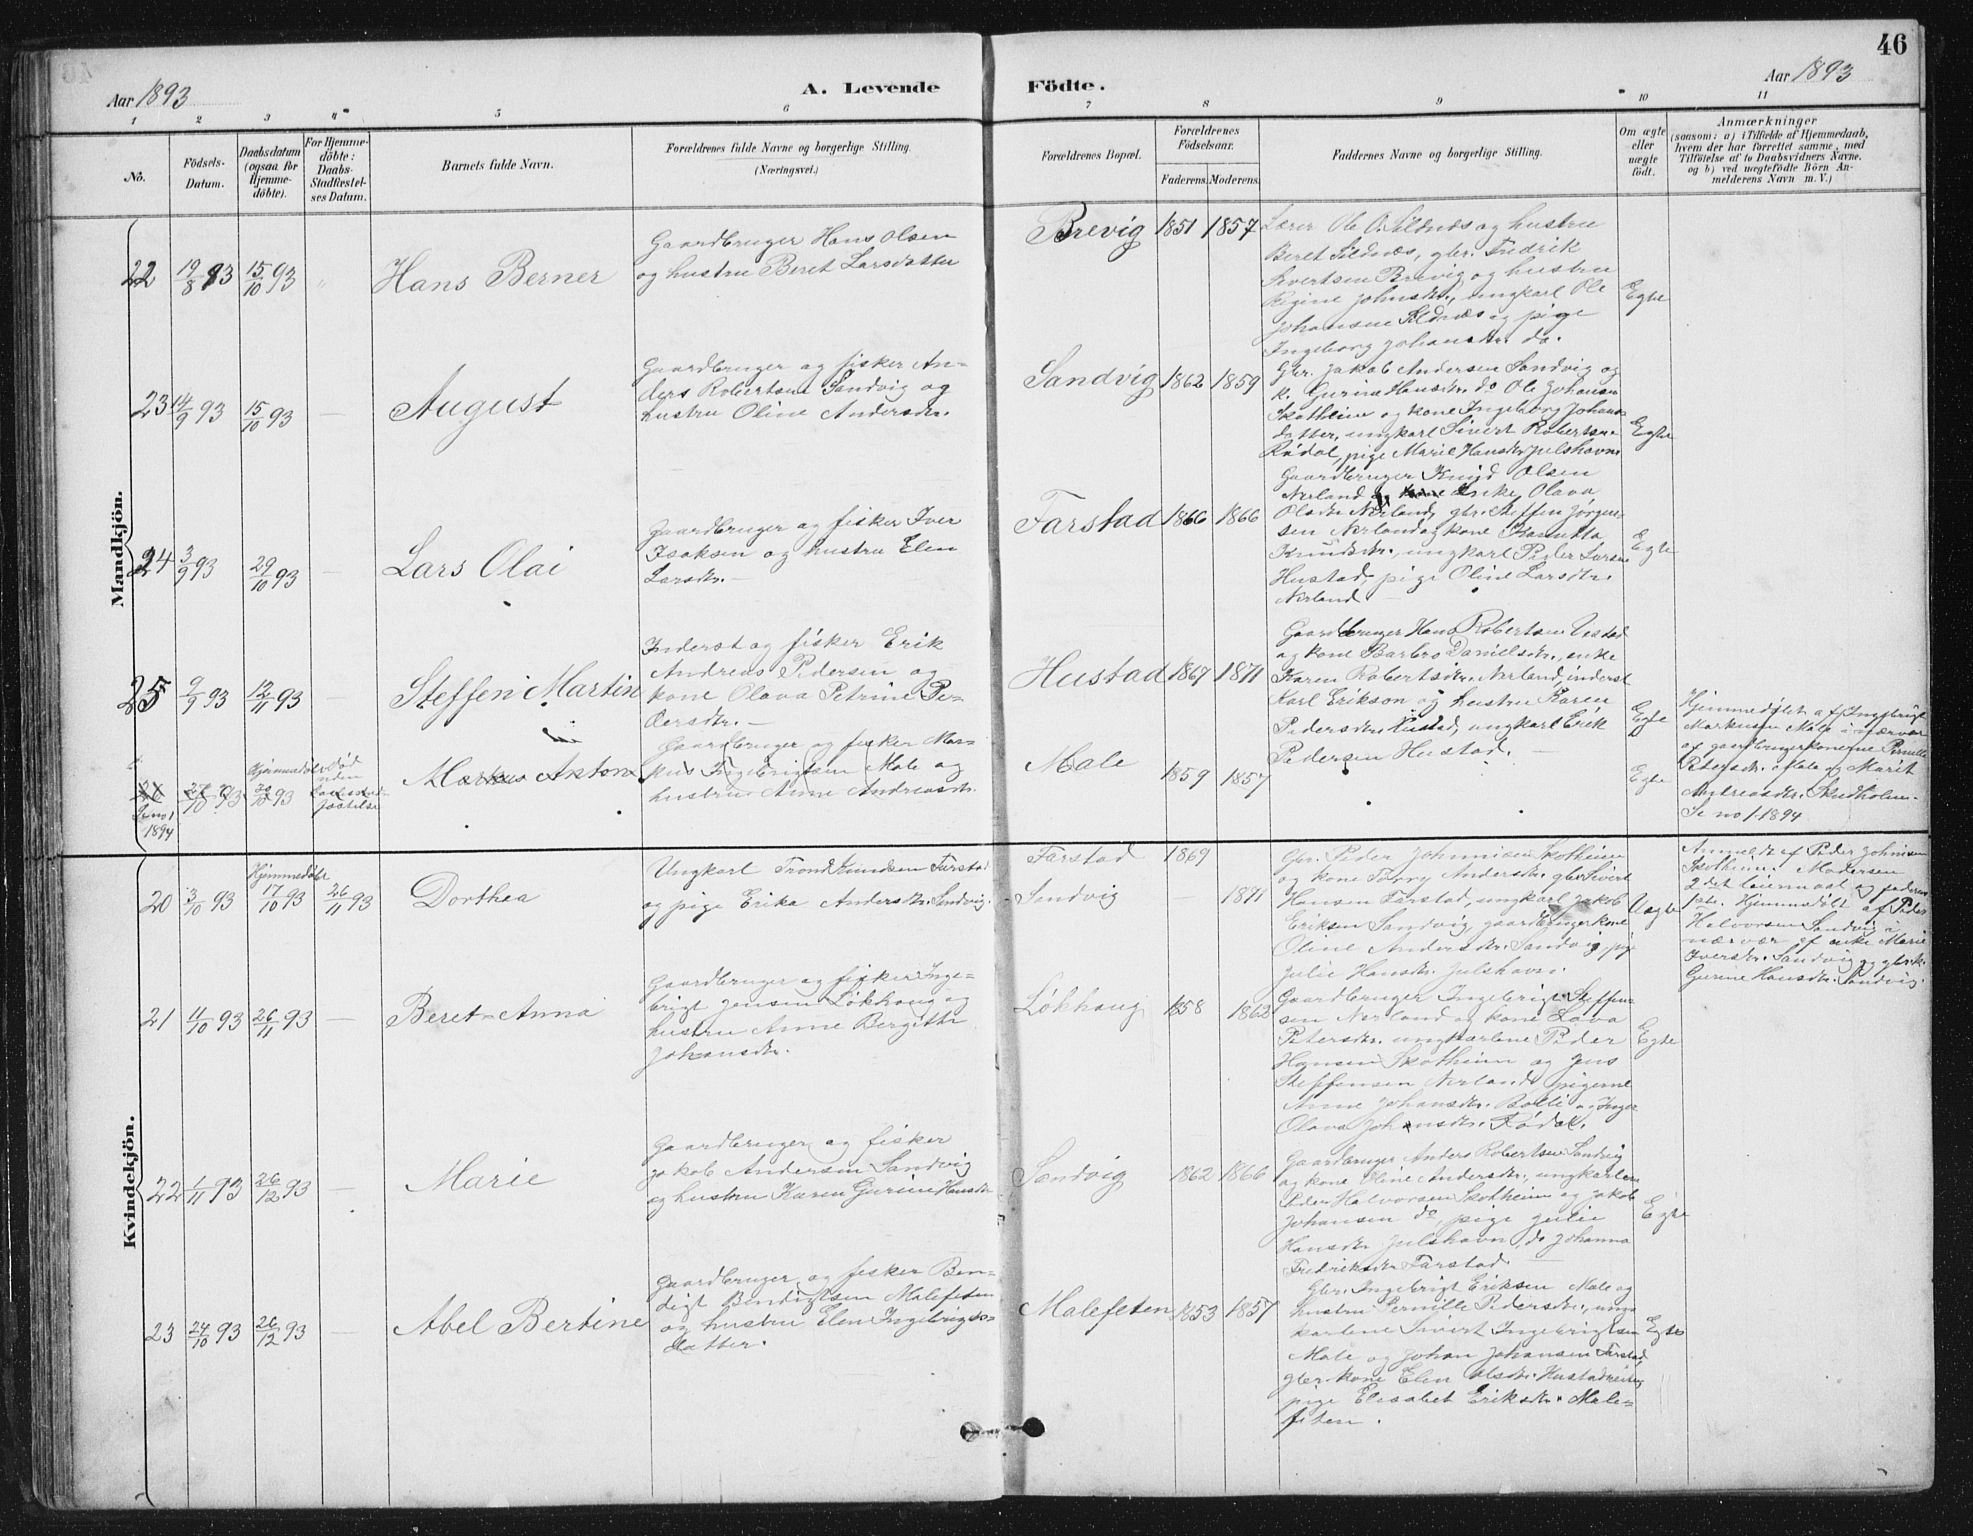 46
Aar 1893
A. Levende
Födte.
Aar 1893
1 2 3 4 5 6 7 8 9 10 11
No.
Födsels-
Datum.
Daabsdatum
(ogsaa for
Hjemme-
döbte).
For Hjemme-
döbte:
Daabs-
Stadfæstel-
ses Datum.
Barnets fulde Navn.
Forældrenes fulde Navne og borgerlige Stilling.
(Næringsvei.)
Forældrenes Bopæl.
Forældrenes
Födselsaar.
Faderens. Moderens.
Faddernes Navne og borgerlige Stilling.
Om ægte
eller
uægte
födt.
Anmærkninger
(saasom: a) i Tilfælde af Hjemmedaab,
hvem der har forrettet samme, med
Tilföielse af to Daabsvidners Navne,
og b) ved uægtefödte Börn An-
melderens Navn m. V.)
Mandkjön.
22 19/8 93 15/10 93 Hans Berner
Gaardbruger Hans Olsen
og hustru Beret Larsdatter
Brevig 1851 1857
Lærer Ole O. Sildnæs og hustru
Beret Sildnæs, gbr. Fredrik
Sivertsen Brevig og hustru
Regine Johnsdtr., ungkarl Ole
Johansen Sildnæs og pige
Ingeborg Johansdtr. do.
Egte
23 14/9 93 15/10 93 — August
Gaardbruger og fisker An-
ders Robertsen Sandvig og
hustru Oline Andersdtr.
Sandvig 1862 1859
Gbr. Jakob Andersen Sandvig og
k. Gurine Hansdtr. do Ole Johansen
Skotheim og kone Ingeborg Johans-
datter, ungkarl Sivert Robertsen
Rødal, pige Marie Hansdtr Julshavn
Egte
24 3/9 93 29/10 93 — Lars Olai
Gaardbruger og fisker Iver
Isaksen og hustru Elen
Larsdtr. —
Farstad 1866 1866
Gaardbruger Knud Olsen
Nerland enke Olava
Olsdtr Nerland, gbr. Steffen Jørgen-
sen Nerland og kone
Knudsdtr., ungkarl Peder Larsen
Hustad, pige Oline Larsdtr.
Nerland
Egte
25 9/9 93 12/11 93 — Steffen Martin
Inderst og fisker Erik
Andreas Pedersen og
kone Olava Petrine Pe-
dersdtr. —
Hustad 1867 1871
Gaardbruger Hans Robertsen Vestad
og kone Barbro Danielsdtr., enke
Karen Robertsdtr. Nerland, inderst
Karl Erikson og hustru Karen
Pedersdtr Hustad, ungkarl Erik
Pedersen Hustad. —
Egte
26 27/10 93 Hjemmedøbt 29/10 93 Død
inden
Daabsstad-
fæstelse
Se no 1
1894
Markus Anton
Gaardbruger og fisker Mar-
kus Ingebrigtsen Male og
hustru Anne Andreasdtr.
Male 1859 1857
Egte
Hjemmedøbt af Ingebrigt
Markussen Male i nærvær
af gaardbrugerkonerne Pernille
Pedersdtr. Male og Marit
Andreasdtr. Skudholm.
Se no 1-1894
Kvindekjön.
20 3/10 93 Hjemmedøbt 17/10 93 26/11 93 Dorthea
Ungkarl Trond Knudsen Farstad
og pige Erika Andersdtr. Sandvig.
Farstad 1869
Sandvig — 1871
Gbr. Peder Johnnisen Skotheim
og kone Andersdtr. gbr Sivert
Hansen Farstad, ungkarl Jakob
Eriksen Sandvig, gaardbrugerkone
Oline Andersdtr. Sandvig, pige
Julie Hansdtr. Julshavn.
Uægte
Anmeldt af Peder Johnisen
Skotheim. Moderen
2det leiermaal og faderens
1ste. Hjemmedøbt af Peder
Halvorsen Sandvig i
nærvær af enke Marie
Iversdtr. Sandvig og gbr.k.
Gurine Hansdtr. Sandvig.
21 11/10 93 26/11 93 — Beret Anna
Gaardbruger og fisker Inge-
brigt Jensen Løkhaug og
hustru Anne Bergitte
Johansdtr.
Løkhaug 1858 1862
Gaardbruger Ingebrigt Steffen-
sen Nerland og kone Lava
Petersdtr. ungkarlene Peder
Hansen Skotheim og Jens
Steffensen Nerland, pigerne
Anne Johansdtr. Bolli og Inger
Olava Johansdtr. Rødal.
Egte
22 1/11 93 26/12 93 — Marie
Gaardbruger og fisker
Jakob Andersen Sandvig
og hustru Karen Gurine Hansdtr
Sandvig 1862 1866
Gaardbruger Anders Robertsen Sandvig
og kone Oline Andersdtr., ungkarlene
Peder Halvorsen Skotheim og Jakob
Johansen do, pige Julie
Hansdtr Julshavn, do Johanna
Fredriksdtr Farstad. —
Egte
23 24/10 93 26/12 93 — Abel Bertine
Gaardbruger og fisker Ben-
digt Bendigtsen Malefeten
og hustru Elen Ingebrigts-
datter.
Malefeten 1853 1857
Gbr. Ingebrigt Eriksen Male og
hustru Pernille Pedersdtr., ung-
karlene Sivert Ingebrigtsen
Male og Johan Johansen Farstad,
gbr.kone Elen Olsdtr.
pige Elisabet Eriksdtr. Male-
feten.
Egte